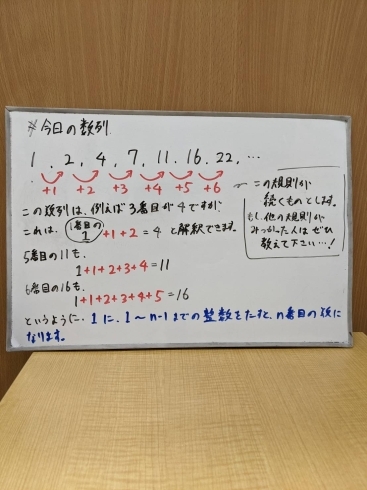 ※今日の数列.
1 , 2 , 4 , 7 , 11 , 16 , 22 , …
+1 +2 +3 +4 +5 +6
この規則が
続くものとします。
もし、他の規則が
みつかった人はぜひ
教えて下さい…!
この数列は、例えば3番目が4ですが、
これは、1番目の1 +1+2 = 4 と解釈できます。
5番目の11も、
1+1+2+3+4 = 11
6番目の16も、
1+1+2+3+4+5 = 16
というように… 1に、1〜n-1までの整数をたすと、n番目の数に
なります。